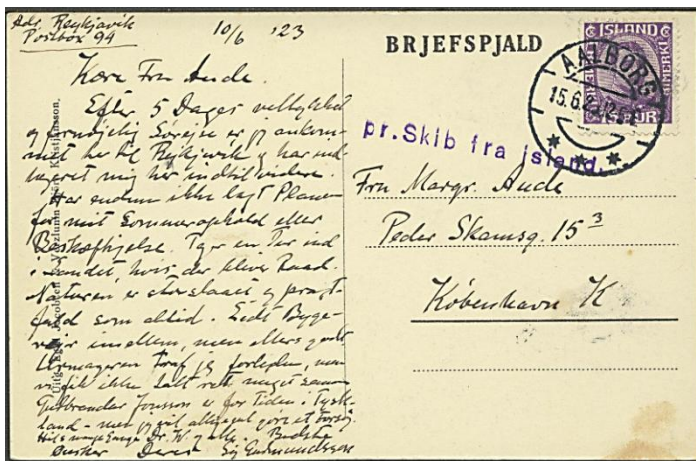 Adr. Reykjavik
Postbox 94
10/6 '23
BRJEFSPJALD
Kære Fru Aude.
Efter 5 Dages vellykket
og fornøjelig Sørejse er jeg ankom-
met her til Reykjavik og har ind
mig her indtil videre.
Har endnu ikke lagt Planer
for mit Sommerophold eller
Beskæftigelse. Tager en Tur ind
i Landet, hvis der bliver Raad.
Naturen er storslaaet og pragt-
fuld som altid. Lidt Byge-
imellem, men ellers godt
traf jeg forleden, men
vi fik ikke talt ret meget sammen
Gudbrandur Jonsson er for Tiden i Tysk-
land - men jeg vil alligevel gøre et Forsøg.
Hils mange Gange Dr. W. og alle.
ønsker Deres Sig Gudmundsson
ISLAND
AALBORG
15.6.
pr. Skib fra island.
Fru Margr. Aude
Peder Skramsg. 15³
København K
Kristjánsson.